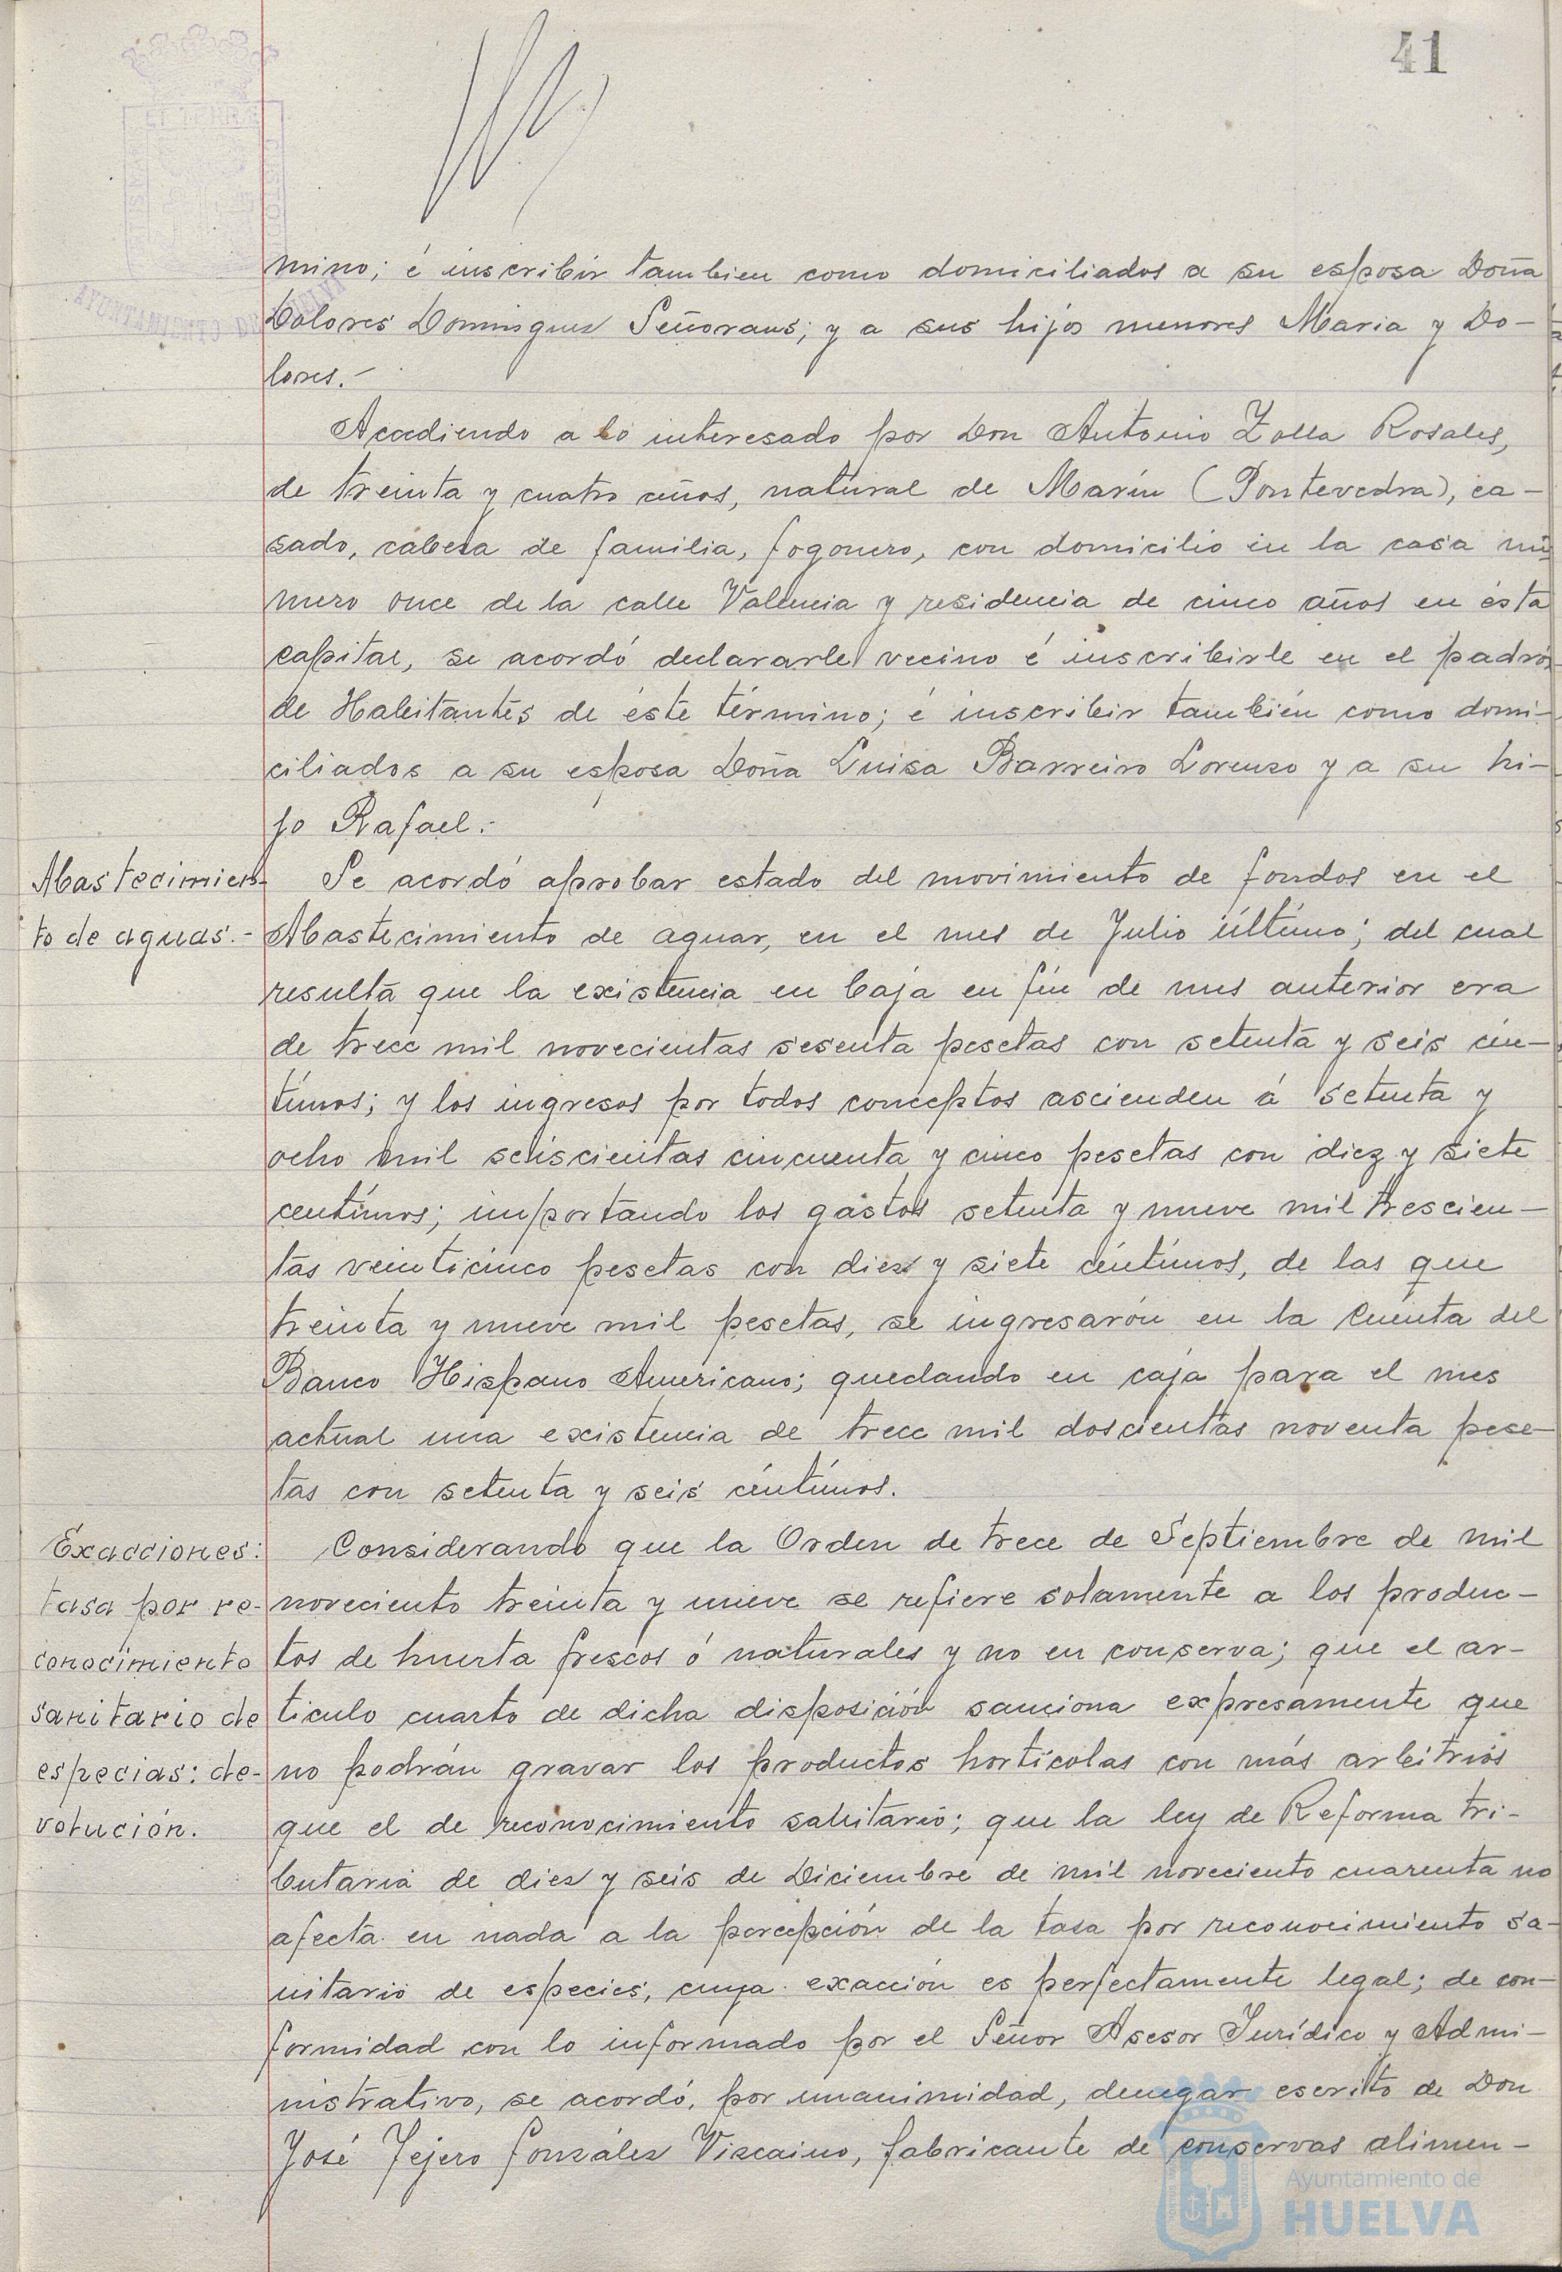 41
mino; é inscribir tambien como domiciliados a su esposa Doña
Dolores Dominguez Señorans; y a sus hijos menores Maria y Do-
lores.-
Accediendo a lo interesado por Don Antonio Zolla Rosales,
de treinta y cuatro años, natural de Marín (Pontevedra), ca-
sado, cabeza de familia, fogonero, con domicilio en la casa nú-
mero once de la calle Valencia y residencia de cinco años en ésta
capital, se acordó declararle vecino é inscribirle en el padrón
de Habitantes de éste término; é inscribir también como domi-
ciliados a su esposa Doña Luisa Barreiro Lorenzo y a su hi-
jo Rafael.-
Abastecimien-
to de aguas.-
Se acordó aprobar estado del movimiento de fondos en el
Abastecimiento de aguar, en el mes de Julio último; del cual
resulta que la existencia en caja en fin de mes anterior era
de trece mil novecientas sesenta pesetas con setenta y seis cén-
timos; y los ingresos por todos conceptos ascienden á setenta y
ocho mil seiscientas cincuenta y cinco pesetas con diez y siete
centímos; importando los gastos setenta y nueve mil trescien-
tas veinticinco pesetas con diez y siete céntimos, de las que
treinta y nueve mil pesetas, se ingresarón en la Cuenta del
Banco Hispano Americano; quedando en caja para el mes
actual una existencia de trece mil doscientas noventa pese-
tas con setenta y seis céntimos.
Exacciones:
tasa por re-
conocimiento
sanitario de
especias: de-
volución.
Considerando que la Orden de trece de Septiembre de mil
noveciento treinta y nueve se refiere solamente a los produc-
tos de huerta frescos ó naturales y no en conserva; que el ar-
ticulo cuarto de dicha disposición sanciona expresamente que
no podrán gravar los productos hortícolas con más arbitrios
que el de reconocimiento sanitario; que la ley de Reforma tri-
butaria de diez y seis de Diciembre de mil noveciento cuarenta no
afecta en nada a la percepción de la tasa por reconocimiento sa-
nitario de especies, cuya exacción es perfectamente legal; de con-
formidad con lo informado por el Señor Asesor Jurídico y Admi-
nistrativo, se acordó, por unanimidad, denegar escrito de Don
José Tejero González Vizcaino, fabricante de conservas alimen-
Ayuntamiento de
HUELVA